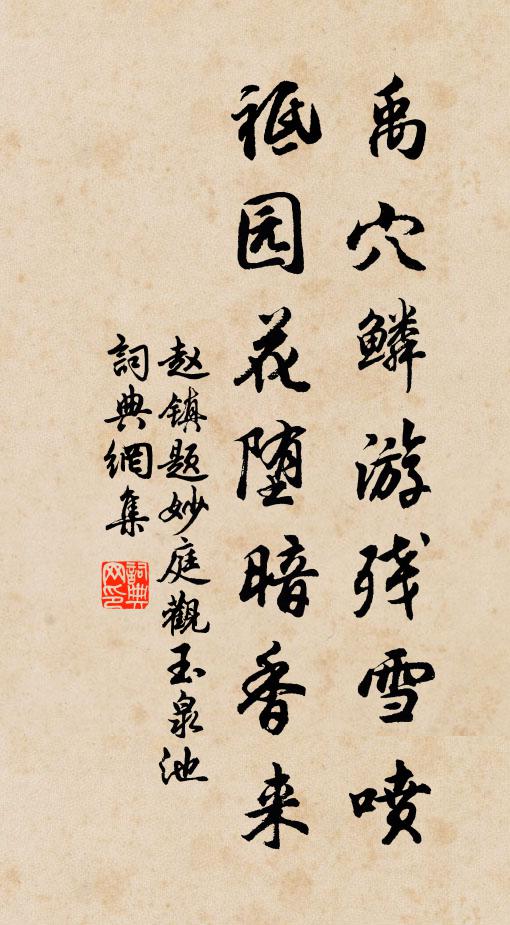 禹穴鳞游残雪喷
祗园花堕暗香来
赵镇题妙庭觀玉泉池
詞典網集
詞典
网印